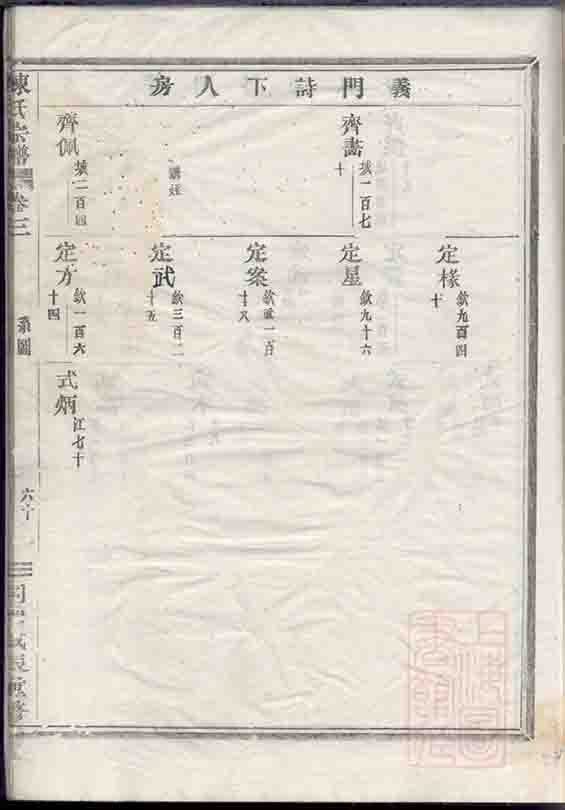 義門詩下八房
齊翥
城一百七
十
講姪
齊佩
城二百四
定椽
欽九百四
十
定星
欽九十六
定案
欽貳一百
十八
定武
欽三百二
十五
定方
欽一百六
十四
式炳
江七十
陳氏宗譜
卷三
系圖
六十
上海圖